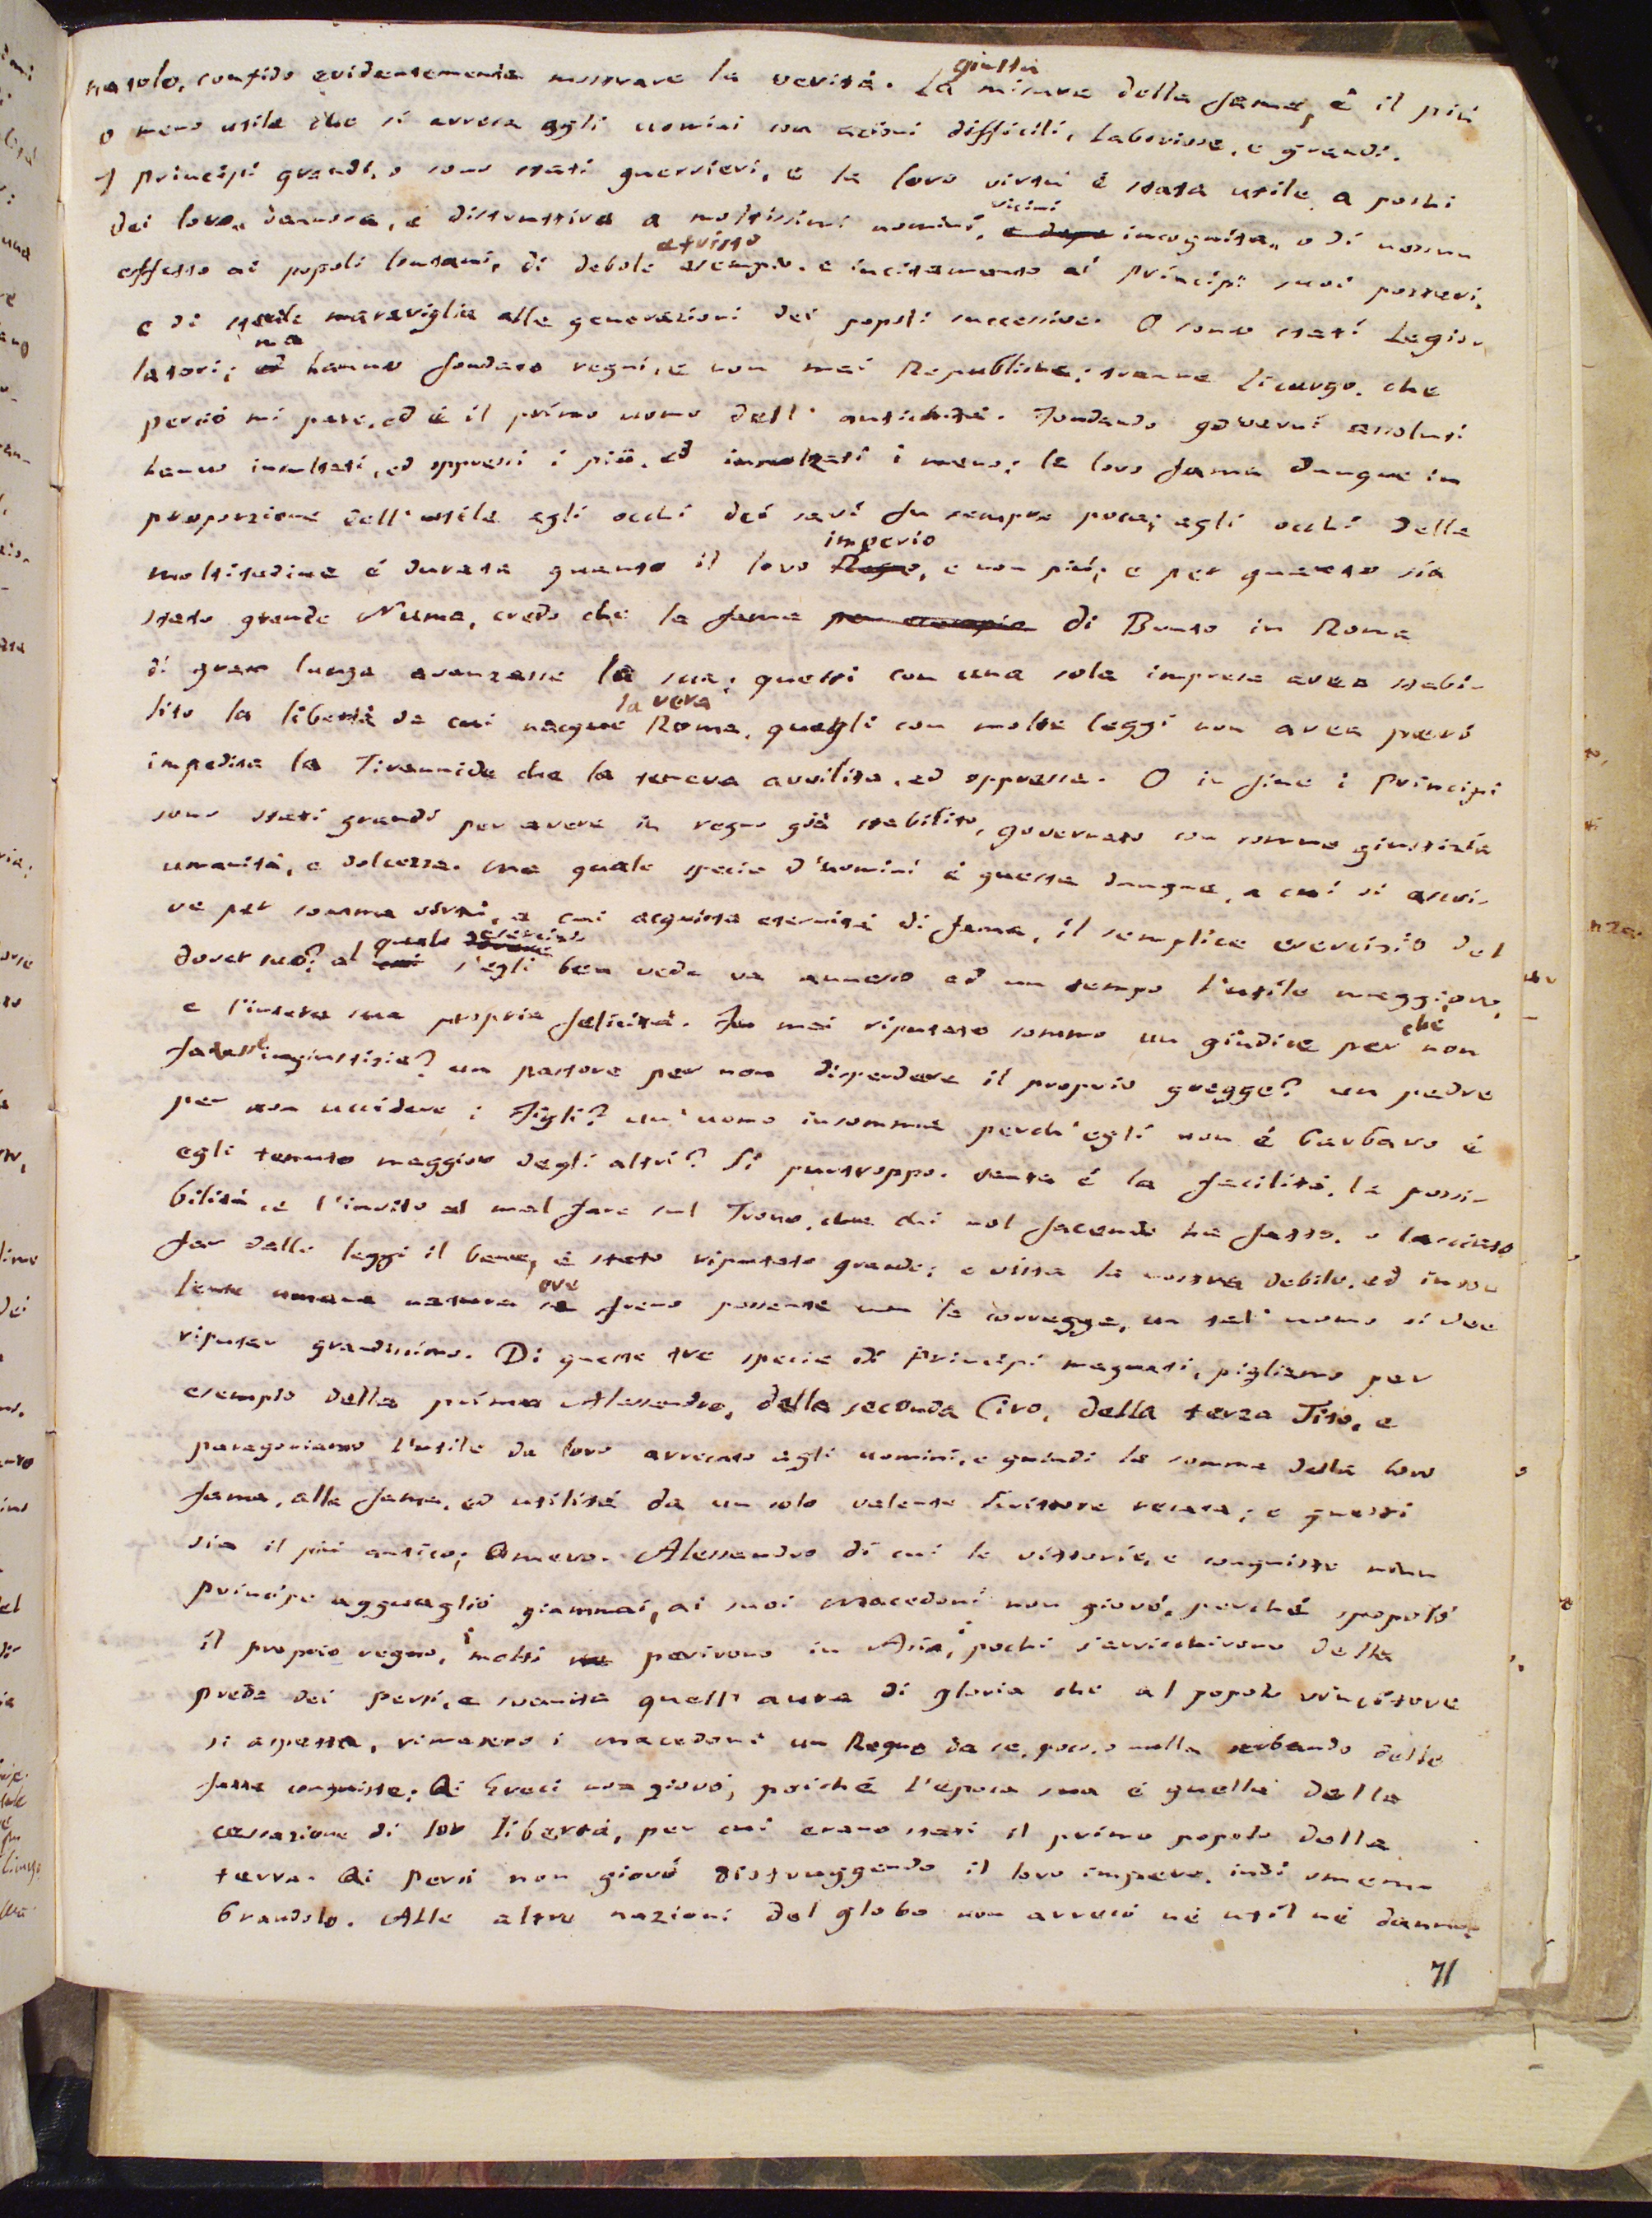 natolo, confido evidentemente mostrare la verità. La giusta misura della fama, è il più
o meno utile che si arreca agli uomini con azioni difficili, laboriose, e grandi.
I Principi grandi, o sono stati guerrieri, e la loro virtù è stata utile a pochi
dei loro, dannosa, e distruttiva a moltissimi uomini vicini, e dopo incognita, o di nessun
effetto ai popoli lontani, di debole e tristo esempio, e incitamento ai Principi suoi posteri,
e di sterile maraviglia alle generazioni dei popoli successive. O sono stati Legis-
latori; ma ed hanno fondato regni, e non mai Repubbliche; tranne Licurgo, che
perciò mi pare, ed è il primo uomo dell' antichità. Fondando governi assoluti
hanno insultati, ed oppressi i più, ed innalzati i meno; la loro fama dunque in
proporzione dell' utile agli occhi dei savi fu sempre poca; agli occhi della
moltitudine è durata quanto il loro Regno, imperio e non più; e per quanto sia
stato grande Numa, credo che la fama per esempio di Bruto in Roma
di gran lunga avanzasse la sua; questi con una sola impresa avea stabi-
lito la libertà da cui nacque la vera Roma, quegli con molte leggi non avea però
impedita la Tirannide che la teneva avvilita, ed oppressa. O in fine i Principi
sono stati grandi per avere in regno già stabilito, governato con somma giustizia
umanità, e dolcezza. Ma quale specie d'uomini è questa dunque, a cui si ascri-
ve per somma virtù, e cui acquista eternità di fama, il semplice esercizio del
dover suo? al cui quale dovere esercizio s'egli ben vede va annesso ad un tempo l'utile maggiore,
e l'intera sua propria felicità. Fu mai riputato sommo un giudice perchè non
facesse ingiustizie? un pastore per non disperdere il proprio gregge? un padre
per non uccidere i Figli? un' uomo insomma perch'egli non è barbaro è
egli tenuto maggior degli altri? Sì purtroppo. tanta è la facilità, la possi-
bilità, e l'invito al mal fare sul Trono, che chi nol facendo ha fatto, o lasciato
far dalle leggi il bene, è stato riputato grande; e vista la nostra debile, ed inso-
lente umana natura se ove freno possente non la corregge, un tal' uomo si dee
riputar grandissimo. Di queste tre specie di Principi magnati, pigliamo per
esempio della prima Alessandro, della seconda Ciro, della terza Tito, e
paragoniamo l'utile da loro arrecato agli uomini, e quindi la somma della loro
fama, alla fama, ed utilità da un solo valente Scrittore recata; e questi
sia il più antico; Omero. Alessandro di cui le vittorie, e conquiste niun
principe agguagliò giammai, ai suoi Macedoni non giovò, perchè spopolò
il proprio regno, i molti ne perirono in Asia, i pochi s'arricchirono della
preda dei Persi, e svanita quell' aura di gloria che al popolo vincitore
si aspetta, rimasero i Macedoni un Regno da se, poco, o nulla serbando delle
fatte conquiste; Ai Greci non giovò, poichè l'epoca sua è quella della
cessazione di lor libertà, per cui erano stati il primo popolo della
terra. Ai Persi non giovò distruggendo il loro impero, indi smem-
brandolo. Alle altre nazioni del globo non arrecò nè util nè danno
71